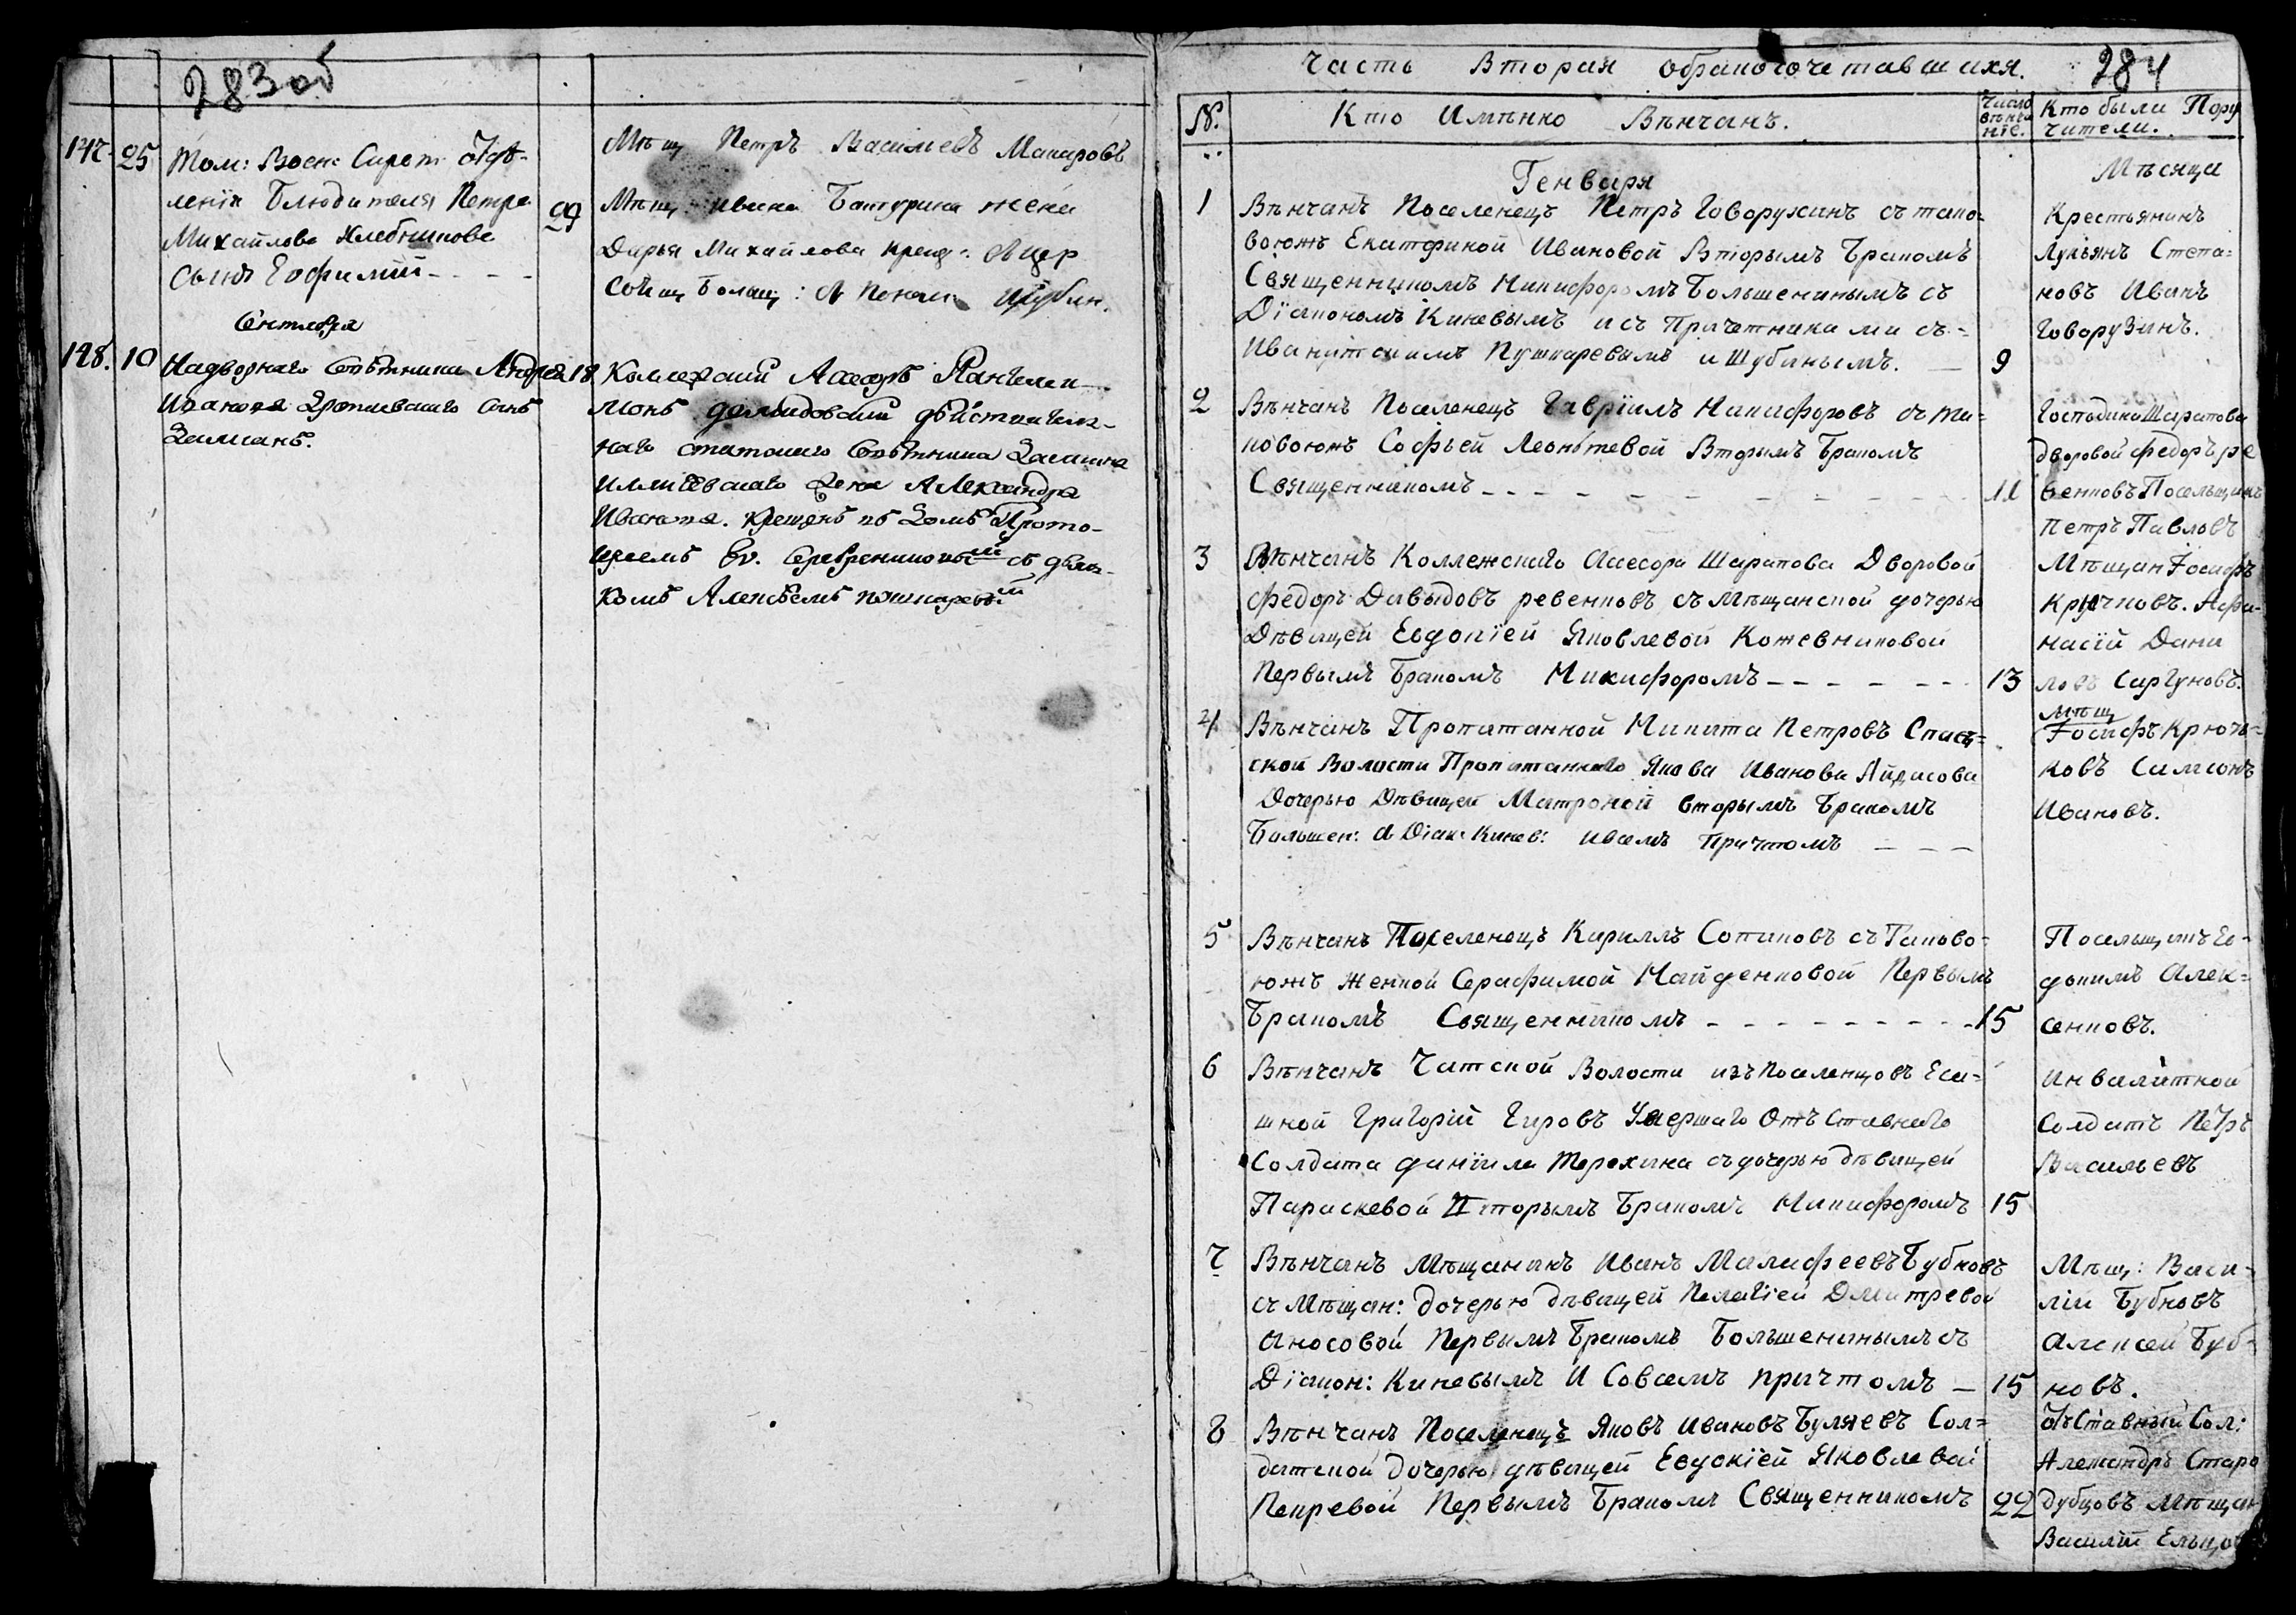 283 об
147. 25 Том: Воен: Сирот Отдѣ-
ленiя Блюдителя Петра
Михайлова Хлебникова
сынъ Евфимiй - - - -
29
Мѣщ Петръ Васильевъ Макаровъ
Мѣщ. Ивана Батурина жена
Дарья Михайлова крещ:
Сентября
148. 10 Надворнаго Совѣтника Андрея
Иванова сынъ
18 Коллежскiй Асесоръ Пантелеи-
монъ дѣйствитель-
наго статскаго Совѣтника
Илличевскаго Александра
Иванова. крещенъ въ Домѣ Прото-
iереемъ Ев.
комъ Алексѣемъ
Часть Вторая обракосочетавшихся.
284
№.
Кто Имѣнно Вѣнчанъ.
Число
вѣнча
нiе.
Кто были Пору
чители.
Генваря
Мѣсяца
1 Вѣнчанъ Поселенецъ Петръ Говорухинъ съ тако-
воюжъ Екатериной Ивановой Вторымъ бракомъ
Священникомъ Никифоромъ Большенинымъ съ
Дiакономъ Киневымъ и съ Причетниками съ-
Иванитскимъ Пушкаревымъ и Шубинымъ. — 9
Крестьянинъ
Лукьянъ Степа=
новъ Иванъ
Говорузинъ.
2 Вѣнчанъ Поселенецъ Гаврiилъ Никифоровъ съ та-
ковоюжъ Софьей Леонтевой Вторымъ Бракомъ
Священникомъ - - - - - - - - - 11
Господина Шарапова
дворовой федоръ ре
венковъ Посельщикъ
Петръ Павловъ
3 Вѣнчанъ Коллежскаго Асесора Шарапова Дворовой
федоръ Давыдовъ ревенковъ съ Мѣщанской дочерью
Дѣвицей Евдокiей Яковлевой Кожевниковой
Первымъ Бракомъ Никифоромъ - - - - - - 13
Мѣщан Iосифъ
Крючковъ. Афа-
насiй Дани
ловъ Саргуновъ.
4 Вѣнчанъ Пропитанной Никита Петровъ Спас=
ской Волости Пропитаннаго Якова Иванова
Дочерью Дѣвицей Матроной вторымъ Бракомъ
Большен: и Дiак: Кинев: ивсемъ Причтомъ — — —
мѣщ
Iосифъ Крюч=
ковъ Симионъ
Ивановъ.
5 Вѣнчанъ Поселенецъ Кириллъ Сопиковъ съ Таково=
южъ Женкой Серафимой Найденковой Первымъ
Бракомъ Священникомъ - - - - - - - - - 15
Посельщикъ Ев-
докимъ Алек=
сенковъ.
6 Вѣнчанъ Чатской Волости изъ Поселенцовъ Яса=
шной Григорiй Гировъ Умершаго Отъ Ставнаго
Солдата данiила Терехина съ дочерью дѣвицей
Параскевой Вторымъ Бракомъ Никифоромъ 15
инвалитной
Солдатъ Петръ
Васильевъ
7 Вѣнчанъ Мѣщанинъ Иванъ Малафеевъ Бубновъ
съ Мѣщан: дочерью дѣвицей Пелагiей Дмитревой
Аносовой Первымъ Бракомъ Большенинымъ съ
Дiакон: Киневымъ И Совсемъ причтомъ — 15
Мѣщ: Васи-
лiи Бубновъ
Алексей Буб-
новъ.
8 Вѣнчанъ Поселенецъ Яковъ Ивановъ Буляевъ Сол=
датской Дочерью дѣвицей Евдокiей Яковлевой
Пекревой Первымъ Бракомъ Священникомъ 22
ОтСтавный Сол:
Александръ Старо
дубцовъ Мѣщан
Василiй Ельцов